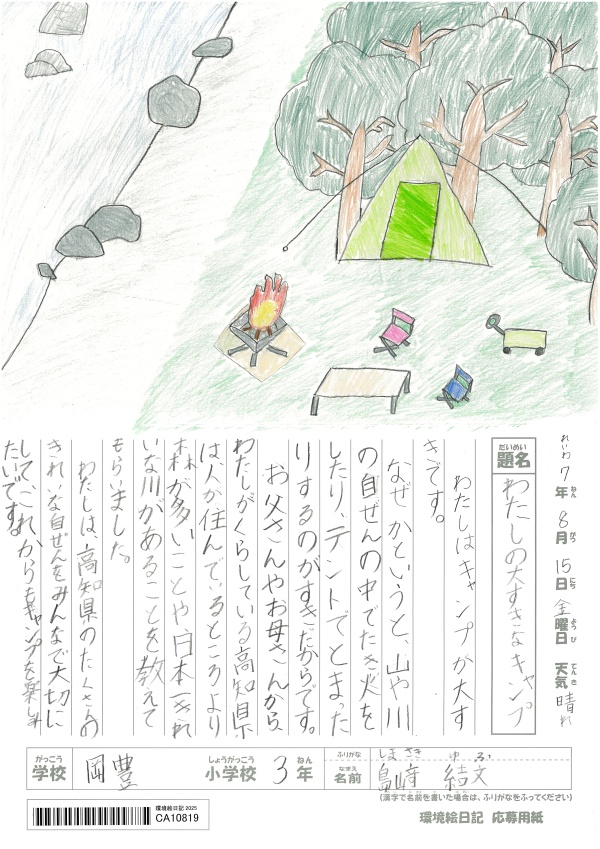 れいわ7年8月15日金曜日 天気晴れ
ねん がつ にち ようび てんき
だいめい
題名 わたしの大すきなキャンプ
わたしはキャンプが大す
きです。
なぜかというと、山や川
の自ぜんの中でたき火を
したり、テントでとまった
りするのがすきだからです。
お父さんやお母さんから、
わたしがくらしている高知県
は人が住んでいるところより
森が多いことや日本一きれ
いな川があることを教えて
もらいました。
わたしは、高知県のたくさんの
きれいな自ぜんをみんなで大切に
して、これからもキャンプを楽しみ
たいです。
がっこう しょうがっこう ねん ふりがな しま さき ゆ ふ
学校 岡豊 小学校 3年 なまえ 名前 島崎 結文
(漢字で名前を書いた場合は、ふりがなをふってください)
環境絵日記 2025
CA10819
環境絵日記 応募用紙